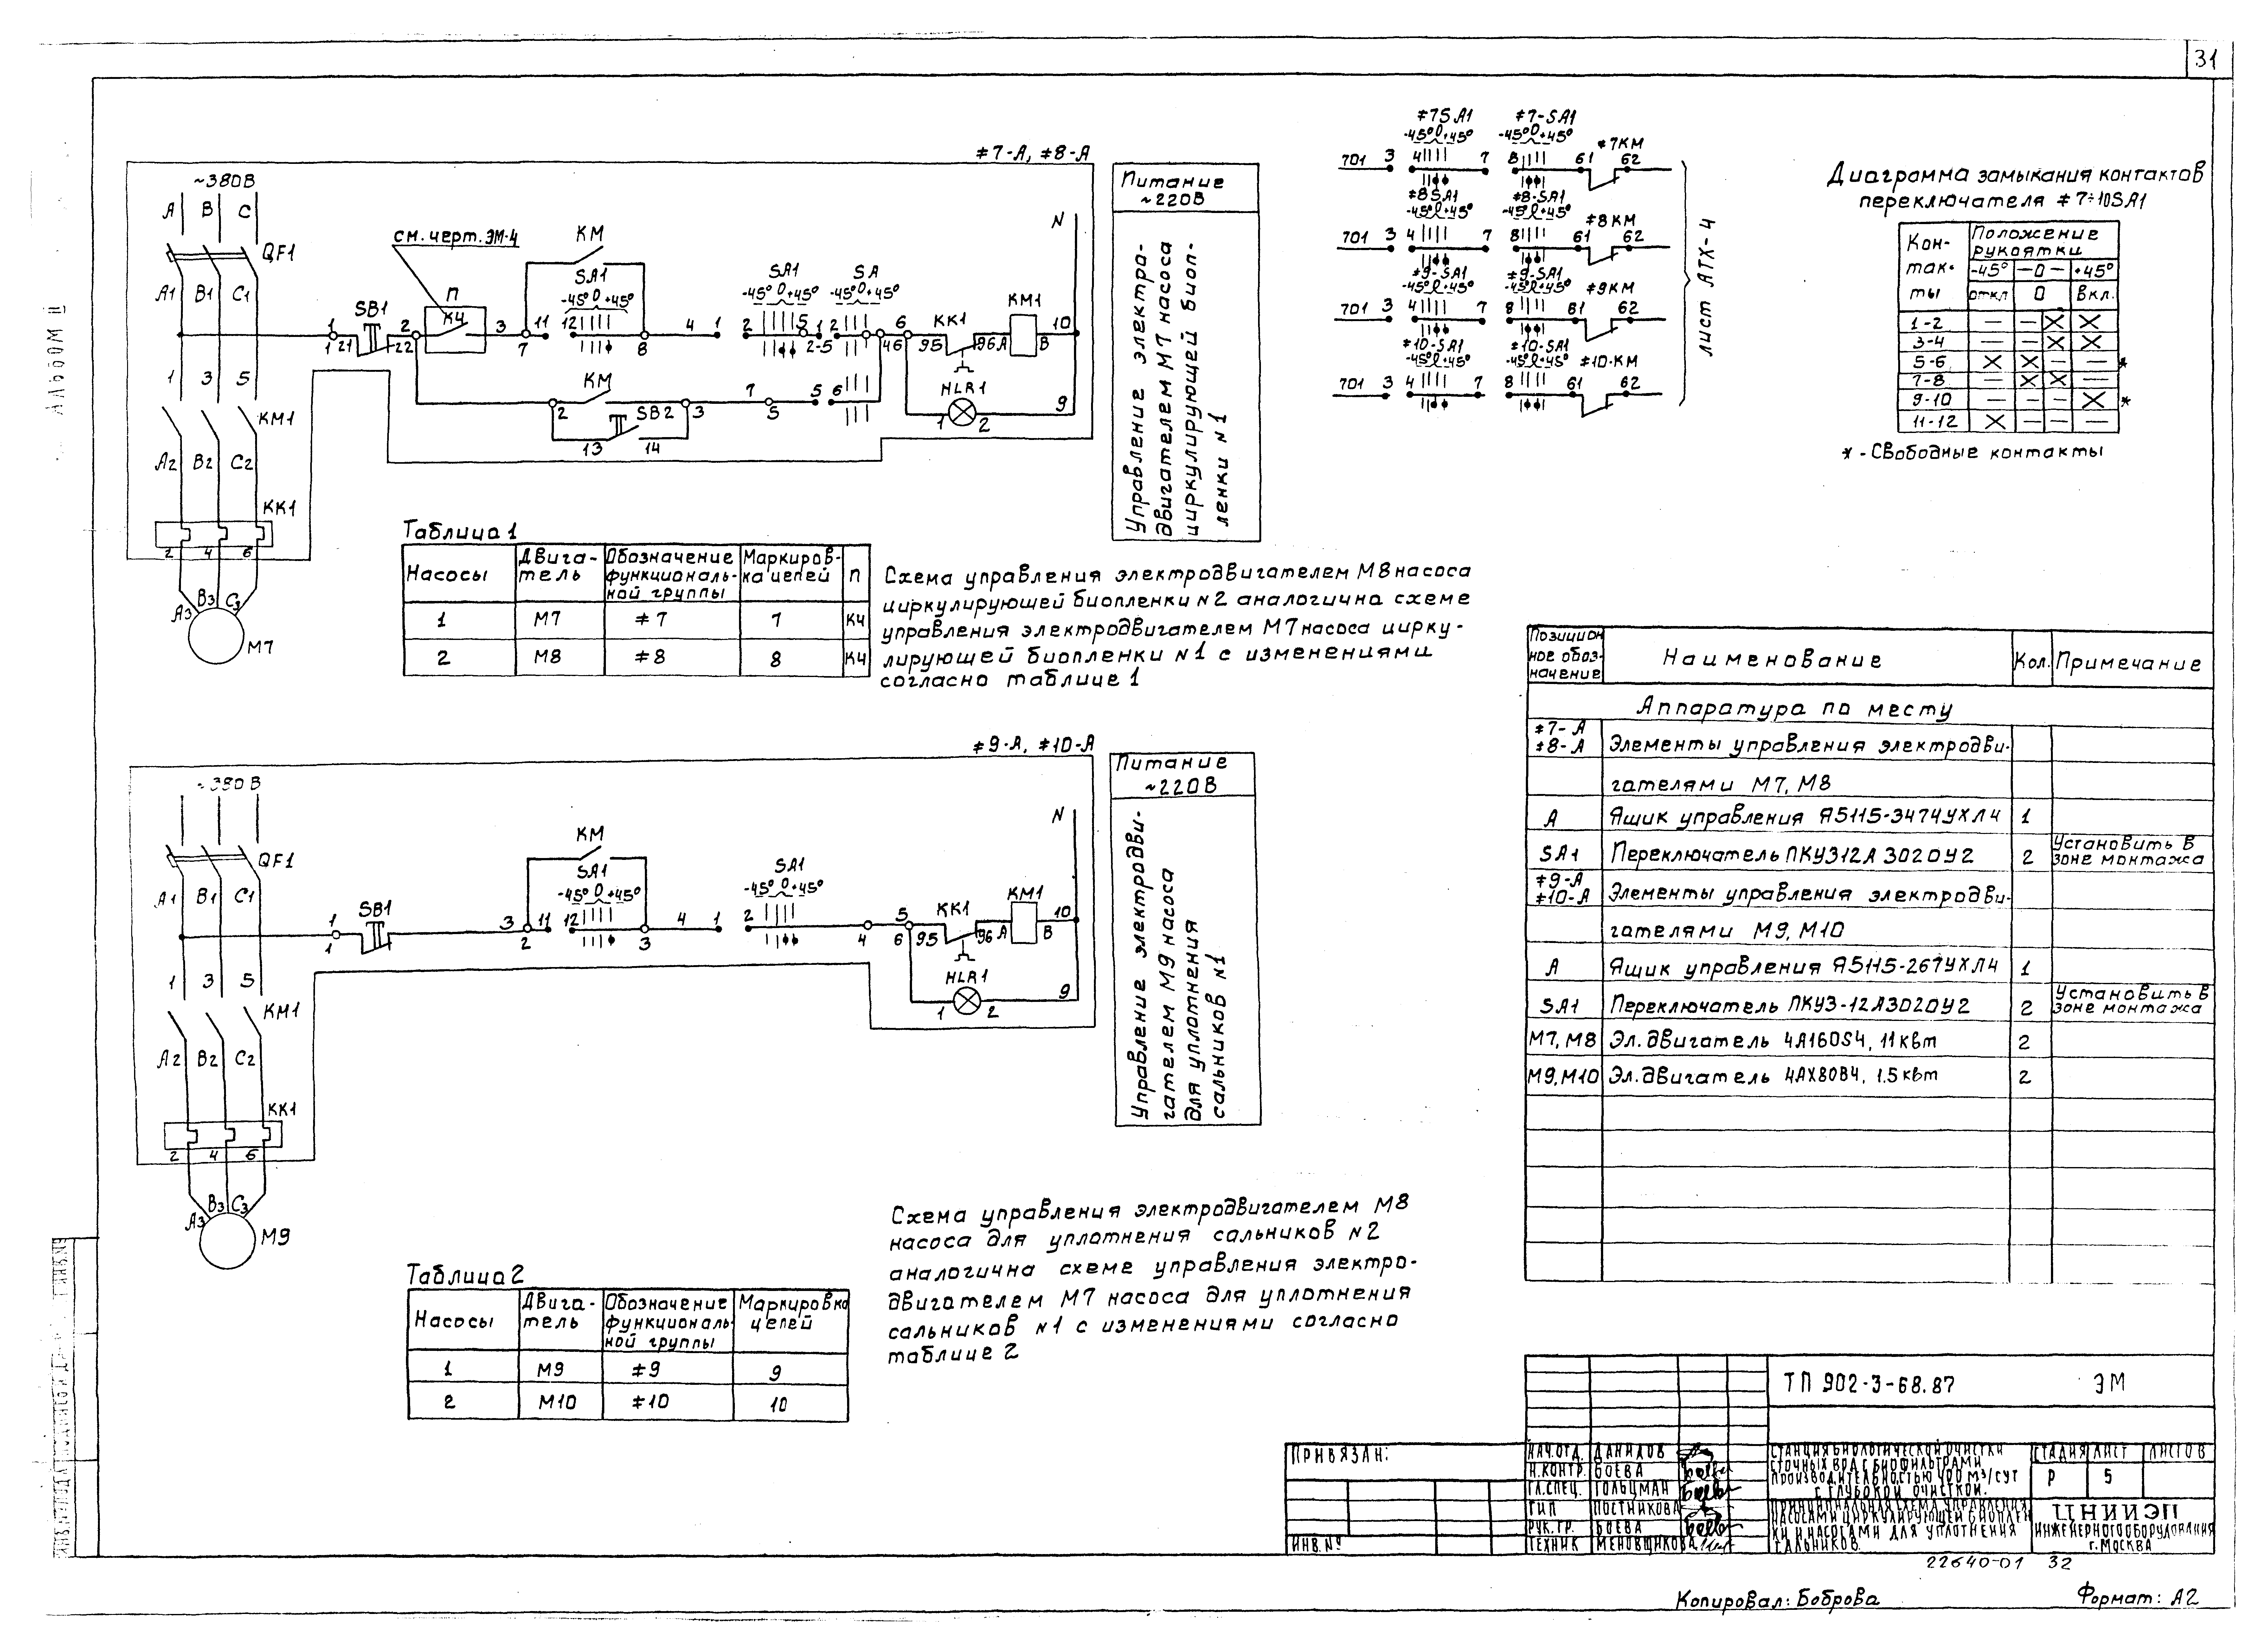 31
Альбом II
≠7-А, ≠8-А
~380В
А В С
QF1
А1 В1 С1
см. черт. ЭМ-4
П
КЧ
SB1
1 21 22 2
3 7 11 12
КМ
SA1
-45° 0 +45°
8 4 1 2
SA1
-45° 0 +45°
5 1 2-5 2
SA
-45° 0 +45°
6 46
КК1
95 96 А
КМ1
В 10
N
HLR1
1 2 9
КМ
2 3
SB2
13 14
7 5 5 6
1 3 5
КМ1
А2 В2 С2
КК1
2 4 6
А3 В3 С3
М7
Питание
~220В
Управление электро-
двигателем М7 насоса
циркулирующей биоп-
ленки №1
≠7SA1 ≠7-SA1
-45° 0 +45° -45° 0 +45°
≠7КМ
701 3 4 7 8 61 62
≠8SA1 ≠8-SA1
-45° 0 +45° -45° 0 +45°
≠8КМ
701 3 4 7 8 61 62
≠9-SA1 ≠9-SA1
-45° 0 +45° -45° 0 +45°
≠9КМ
701 3 4 7 8 61 62
≠10-SA1 ≠10-SA1
-45° 0 +45° -45° 0 +45°
≠10-КМ
701 3 4 7 8 61 62
лист АТХ-4
Диаграмма замыкания контактов
переключателя ≠7÷10SA1
Кон-
так-
ты
Положение
рукоятки
-45° —0— +45°
откл 0 Вкл.
1-2 — — X X
3-4 — — X X
5-6 X X — — *
7-8 — X X —
9-10 — — — X *
11-12 X — — —
* - Свободные контакты
Таблица 1
Насосы Двига-тель Обозначение функциональ-ной группы Маркиров-ка цепей П
1 М7 ≠7 7 КЧ
2 М8 ≠8 8 КЧ
Схема управления электродвигателем М8 насоса
циркулирующей биопленки №2 аналогична схеме
управления электродвигателем М7 насоса цирку-
лирующей биопленки №1 с изменениями
согласно таблице 1
≠9-А, ≠10-А
~380В
QF1
А1 В1 С1
SB1
1 1
3 2 11 12
КМ
SA1
-45° 0 +45°
3 4 1 2
SA1
-45° 0 +45°
4 5 6
КК1
95 96 А
КМ1
В 10
N
HLR1
1 2 9
1 3 5
КМ1
А2 В2 С2
КК1
2 4 6
А3 В3 С3
М9
Питание
~220В
Управление электродви-
гателем М9 насоса
для уплотнения
сальников №1
Позицион
ное обоз-
начение
Наименование Кол. Примечание
Аппаратура по месту
≠7-А
≠8-А Элементы управления электродви-
гателями М7, М8
А Ящик управления Я5115-3474УХЛ4 1
SA1 Переключатель ПКУ312А3020У2 2 Установить в зоне монтажа
≠9-А
≠10-А Элементы управления электродви-
гателями М9, М10
А Ящик управления Я5115-267УХЛ4 1
SA1 Переключатель ПКУ3-12А3020У2 2 Установить в зоне монтажа
М7, М8 Эл. двигатель 4А160S4, 11 квт 2
М9, М10 Эл. двигатель 4АХ80В4, 1.5 квт 2
Схема управления электродвигателем М8
насоса для уплотнения сальников №2
аналогична схеме управления электро-
двигателем М7 насоса для уплотнения
сальников №1 с изменениями согласно
таблице 2
Таблица 2
Насосы Двига-тель Обозначение функциональ-ной группы Маркировка цепей
1 М9 ≠9 9
2 М10 ≠10 10
ТП 902-3-68.87 ЭМ
Привязан:
Инв.№
Нач.отд. Данилов
Н.контр. Боева
Гл.спец. Гольцман
ГИП Постникова
Рук.гр. Боева
Техник Меновщикова
Станция биологической очистки
сточных вод с биофильтрами
производительностью 400 м3/сут
с глубокой очисткой.
Принципиальная схема управления
насосами циркулирующей биоплен
ки и насосами для уплотнения
сальников.
Стадия Лист Листов
Р 5
ЦНИИЭП
инженерного оборудования
г. Москва
22640-01 32
Копировал: Боброва Формат: А2